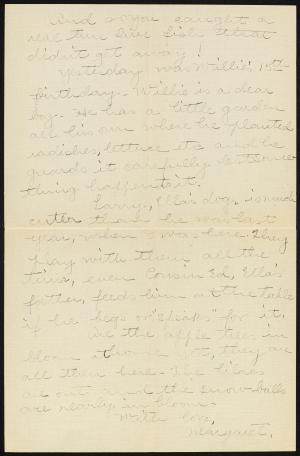 And so you caught a
real live fish that
didn't get away!
Yesterday was Willie's
birthday. Willie is a dear
boy. He has a little garden
all his own where he planted
radishes, lettuce etc and he
guards it carefully
thing happen to it.
Larry, Ella's dog, is much
cuter than he was last
year, when I was here. They
play with him all the
time, even Cousin Ed, Ella's
father, feeds him at the table
if he begs or "speaks" for it.
Are the apple trees in
bloom at home yet, they are
all thru here. The lilacs
are out and the snowballs
are nearly in bloom.
With love,
Margaret.